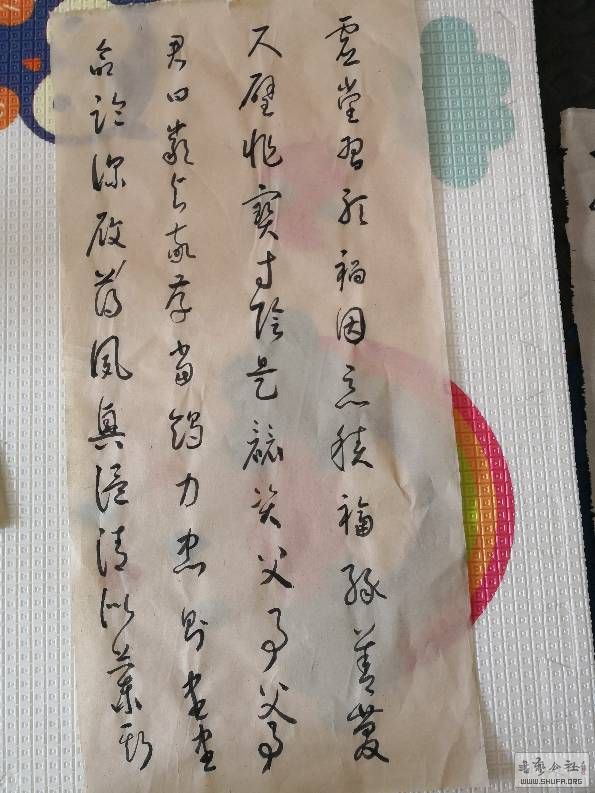 虚堂習聽禍因惡積福緣善慶
尺璧非寶寸陰是競資父事父事
君曰嚴与敬孝當竭力忠則盡盡
命臨深履薄夙興温清似蘭斯
書家公社
WWW.SHUFA.ORG